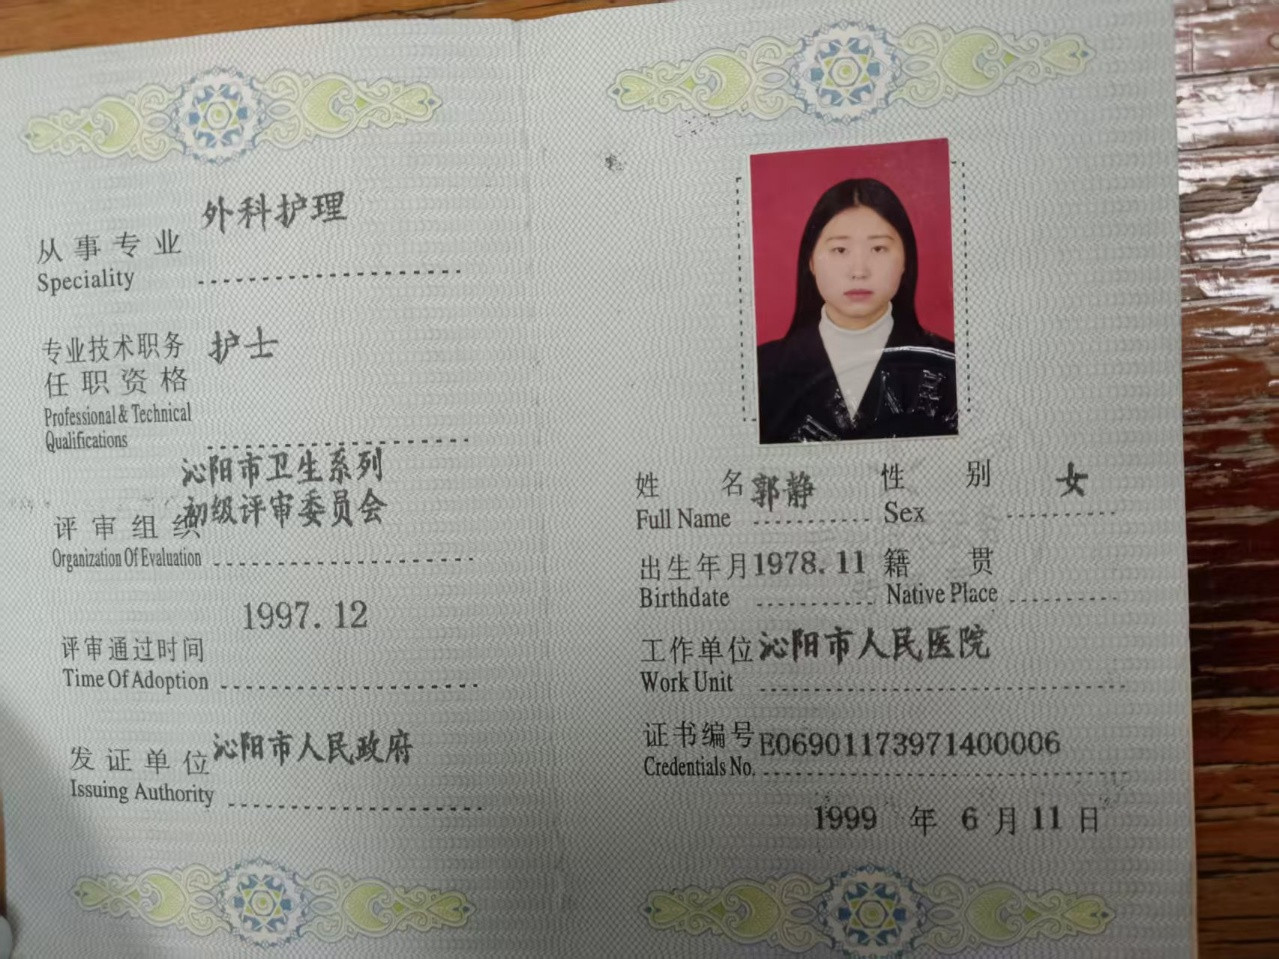 外科护理
从事专业
Speciality
专业技术职务 护士
任职资格
Professional & Technical
Qualifications
沁阳市卫生系列
初级评审委员会
评审组织
Organization Of Evaluation
1997.12
评审通过时间
Time Of Adoption
发证单位 沁阳市人民政府
Issuing Authority
姓名 郭静 性别 女
Full Name Sex
出生年月 1978.11 籍贯
Birthdate Native Place
工作单位 沁阳市人民医院
Work Unit
证书编号 E06901173971400006
Credentials No.
1999 年 6 月 11 日